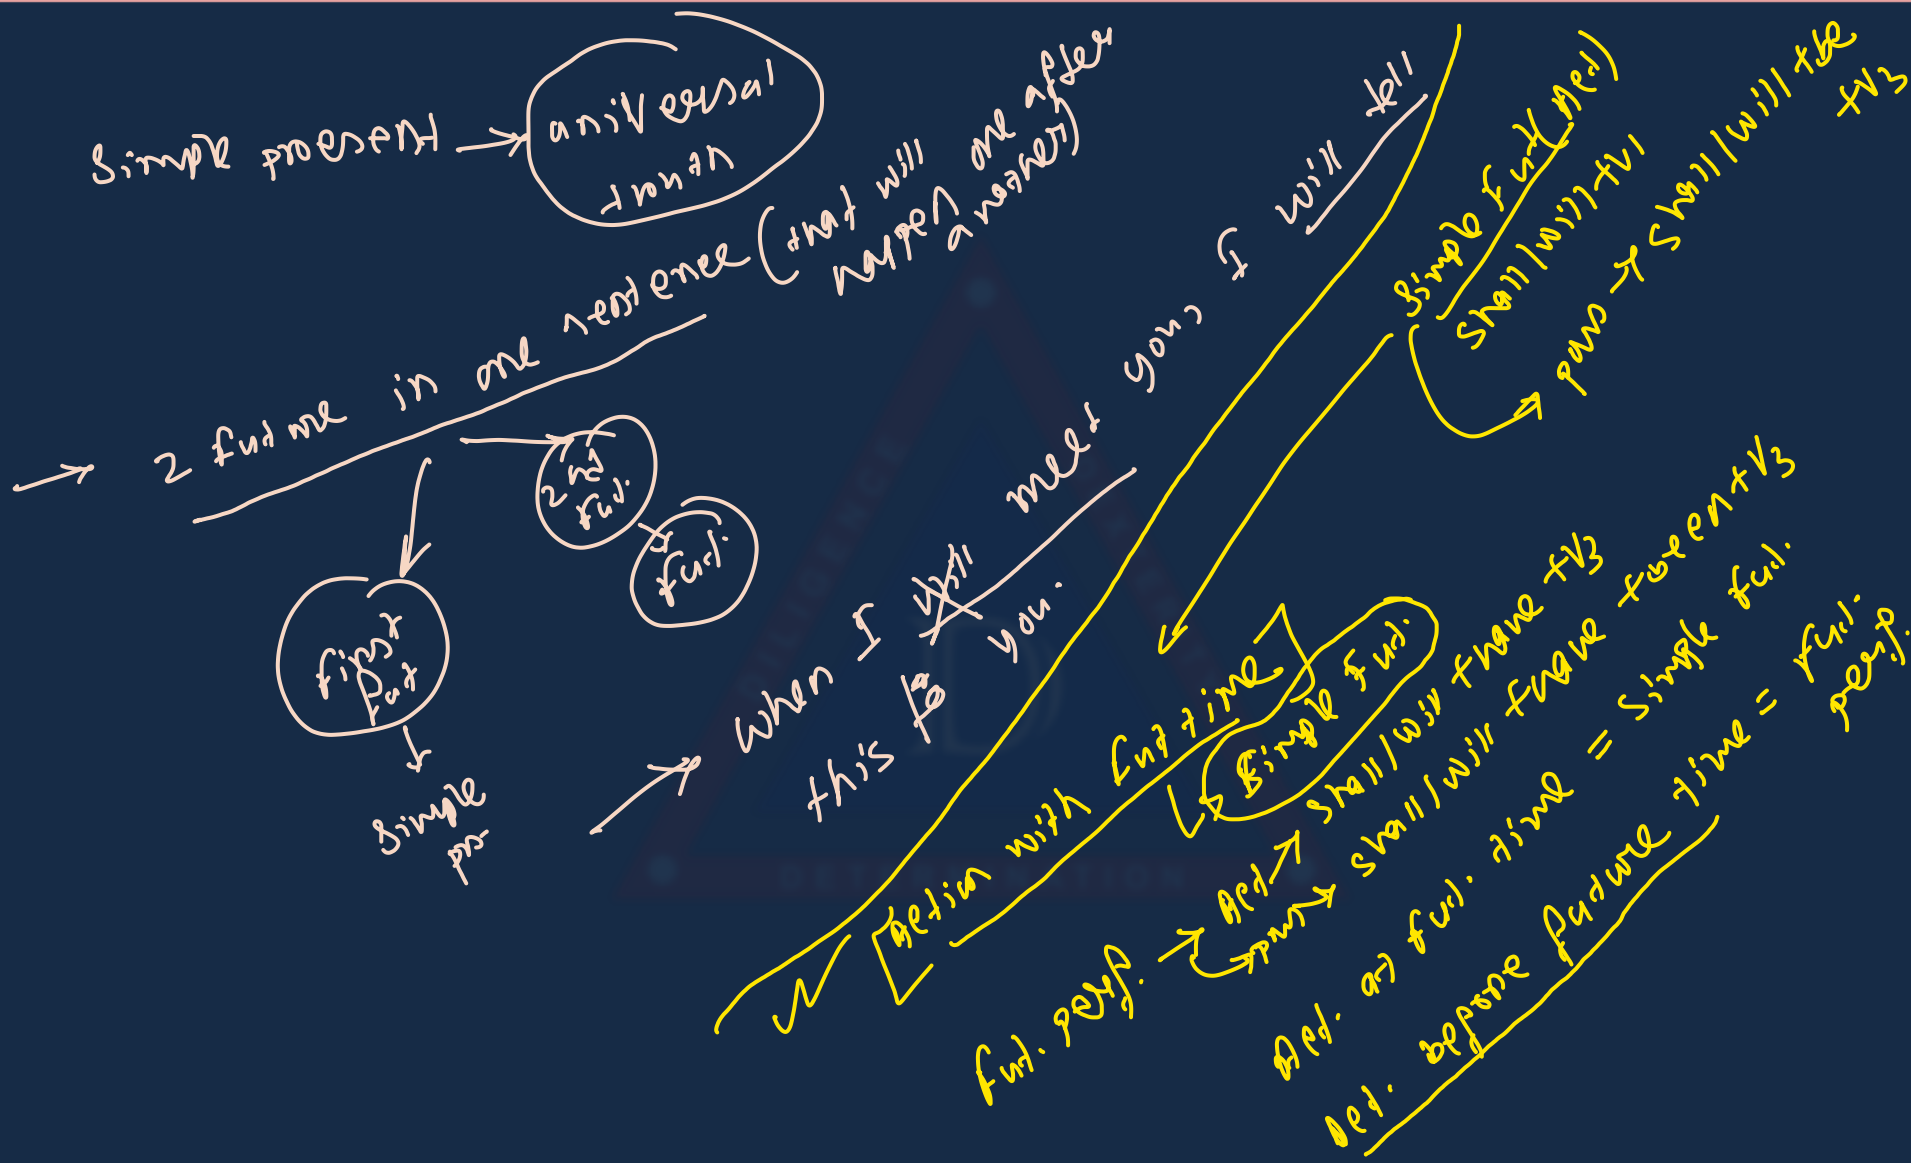 Simple present →
universal
truth
→ 2 future in one sentence (that will
happen one after
another)
2nd
fut.
fut.
first
fut
Simple
prs
→ when I will meet you, I will tell
this to you.
Simple fut (Act)
shall/will+V1
pass → shall/will+be
+V3
[Action with fut time]
Simple fut.
fut. perf. → Act → shall/will+have+V3
pass → shall/will+have+been+V3
Act. at fut. time = simple fut.
Act. before future time = fut.
perf.
DILIGENCE
DETERMINATION